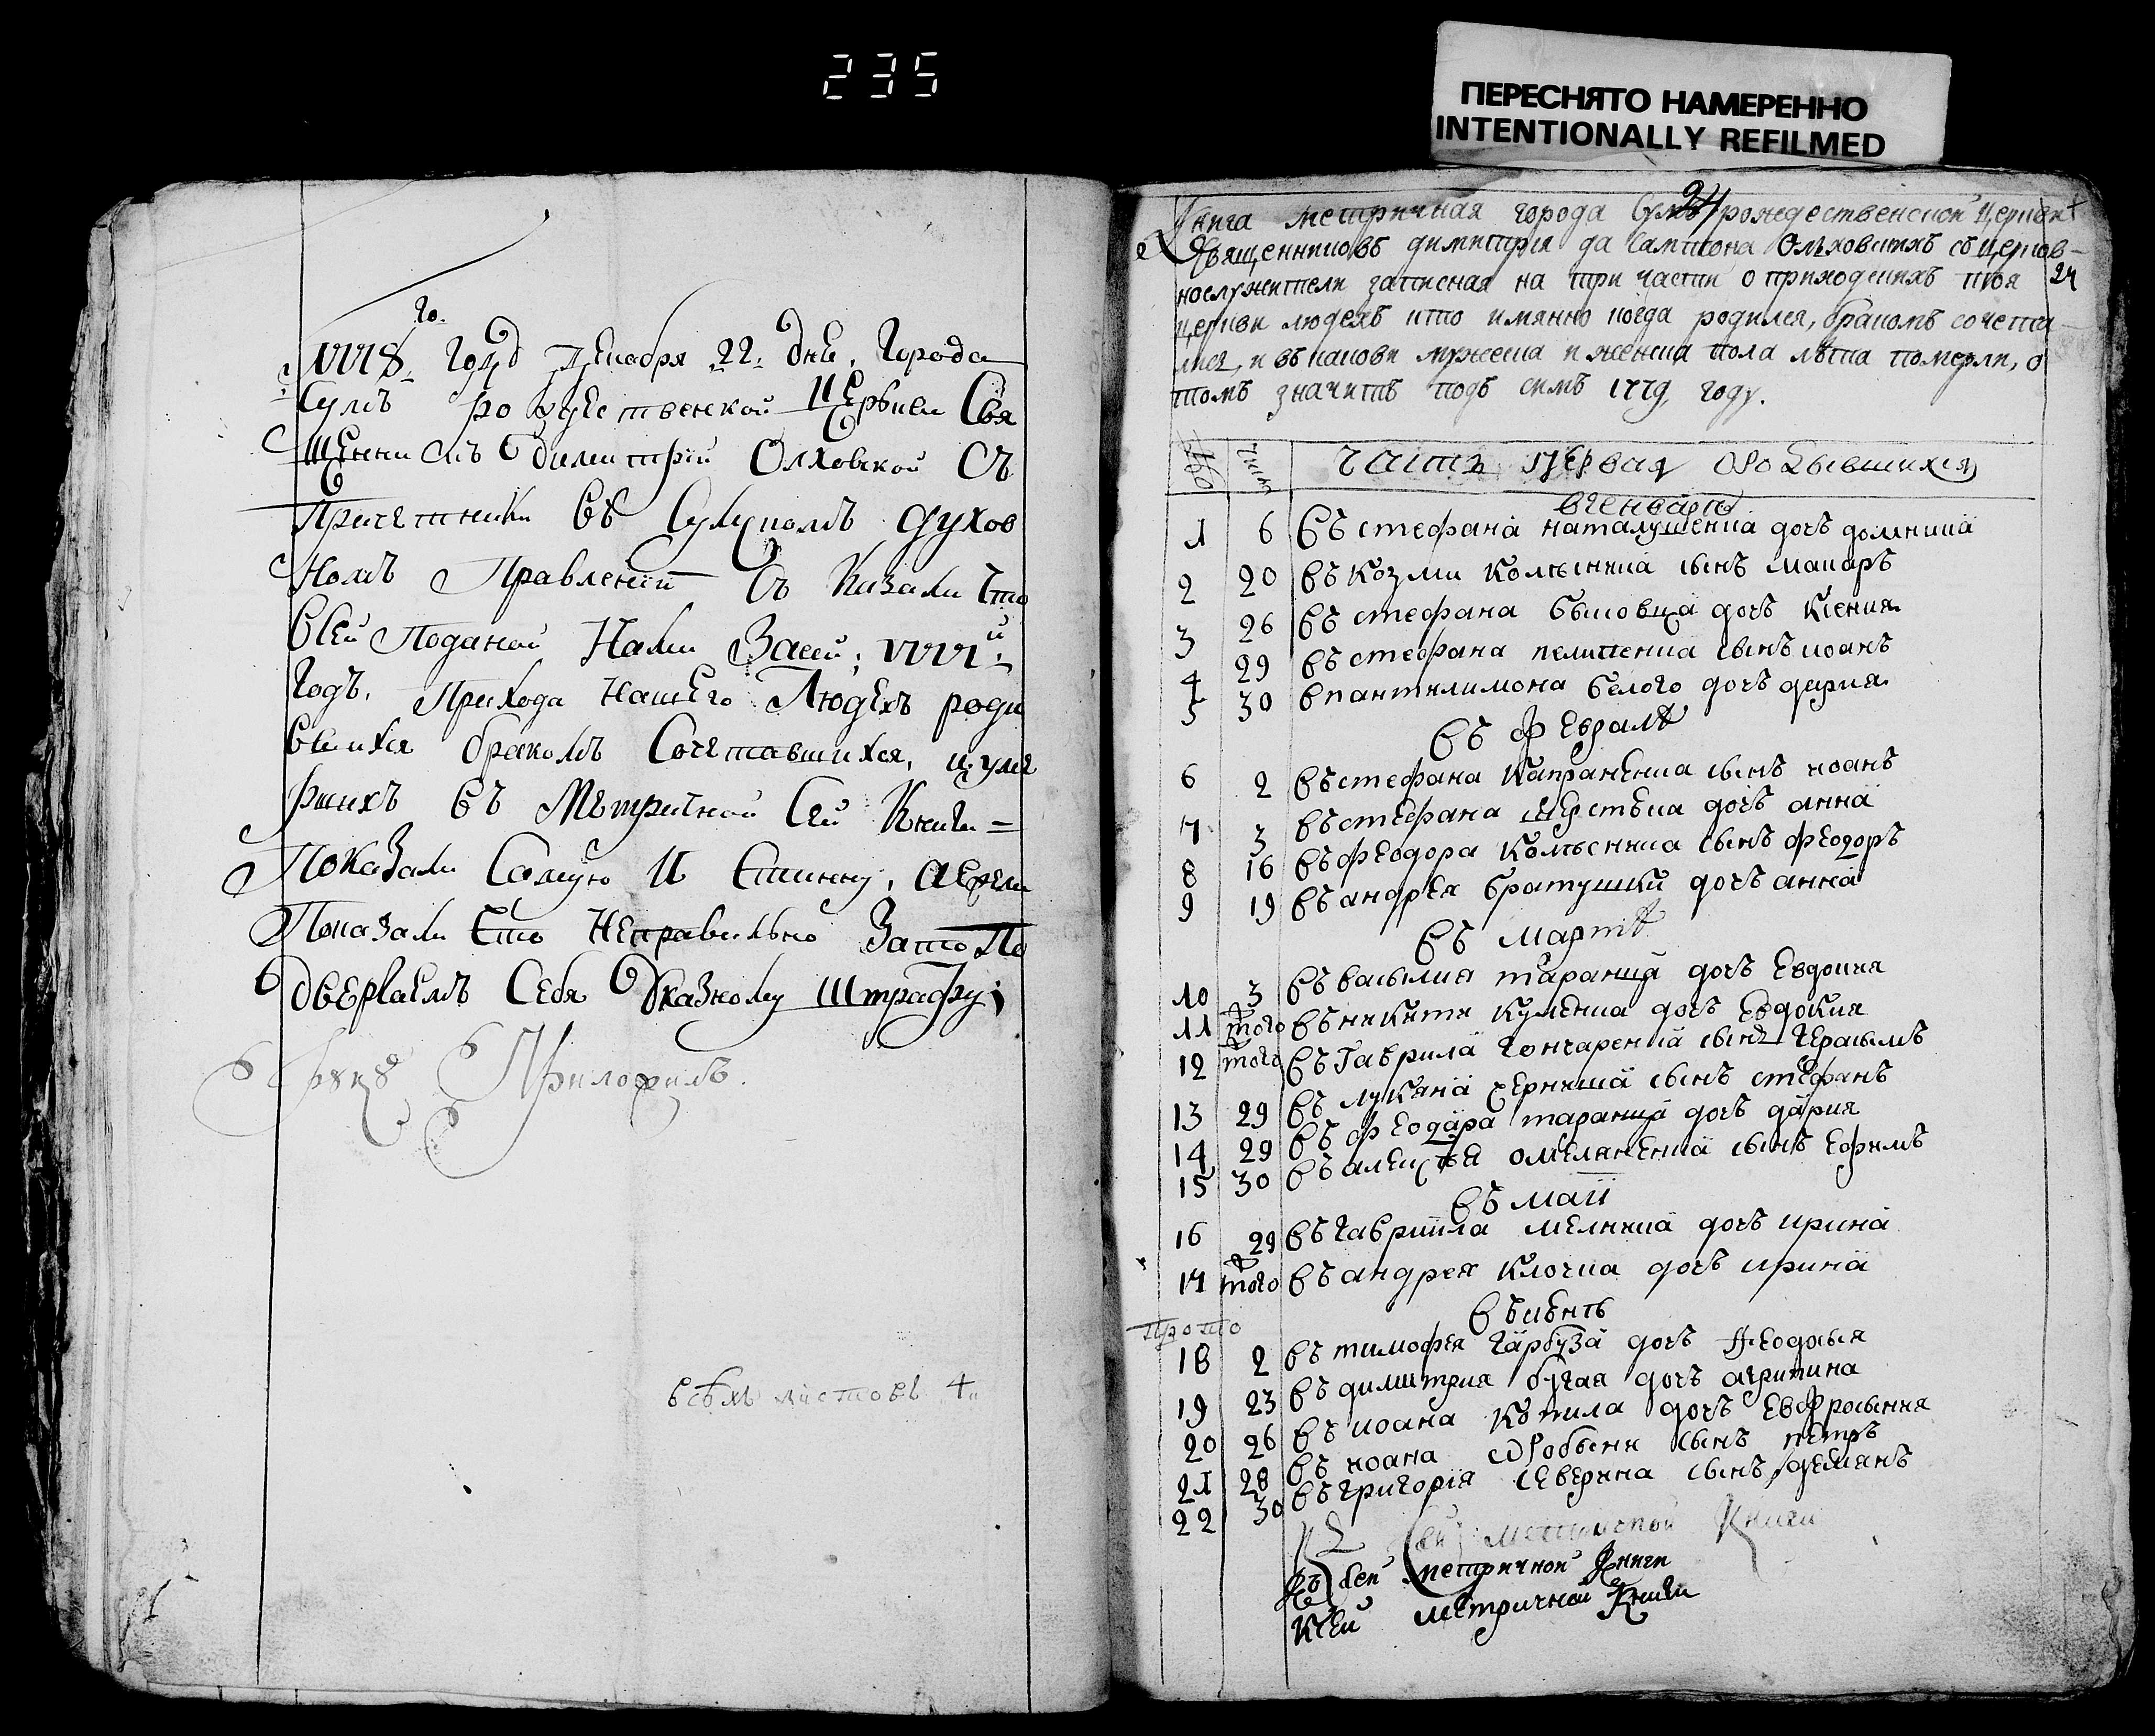 235
ПЕРЕСНЯТО НАМЕРЕННО
INTENTIONALLY REFILMED
го
1778 год декабря 22 дне, Города
Сумъ рождественской Церькви Свя
щенникъ димитрїй Олховской Съ
Причетники въ Сумскомъ духов
номъ Правленїи Съ Казали что
въсей Поданой Нами За сей 1778й
Годъ, Прихода Нашего Людехъ роди
вшихся бракомъ Сочетавшихся, и уме
ршихъ въ Метричной Сей Книги =
Показали Самую Истинну, а ежели
Показали что Неправильно За то По
двергаемъ Себя Указному Штрафу;
всѣхъ листовъ 4
24
Книга метричная города Сумъ рождественской церкви
Священниковъ димитрия да Сампсона Ольховскихъ съ церков-
нослужители записная на три части о приходскихъ тоя
24
церкви людехъ кто имянно когда родился, бракомъ сочета-
лися, и въ каковы мужеска и женска пола лѣта померли, о
томъ значитъ подъ симъ 1779 году.
число
Часть первая о родывшихся
в генварѣ
1 6 въ стефана наталушенка дочъ домникиа
2 20 въ козми колесника сынъ макаръ
3 26 въ стефана быковца дочъ ксения
4 29 въ стефана пелипенка сынъ иоанъ
5 30 в пантилимона белого дочъ дария
въ Февралѣ
6 2 въ стефана капраненка сынъ иоанъ
7 3 въ стефана шерстюка дочъ анна
8 16 въ феодора колесника сынъ феодоръ
9 19 въ андрея братушки дочъ анна
въ мартѣ
10 3 въ василия таранца дочъ Евдокия
11 того въ никити куменка дочъ Евдокия
12 того въ Гаврила гончаренка сынъ герасимъ
13 29 въ лукяна черниша сынъ стефанъ
14 29 въ феодара таранца дочъ дария
15 30 въ алексѣя омеляненка сынъ Ефимъ
въ маїи
16 29 въ гавриила мелника дочъ ирина
17 того въ андрея клочка дочъ ирина
въ июнѣ
18 2 въ тимофея гарбуза дочъ феодосия
19 23 въ димитрия бугая дочъ агрипина
20 26 въ иоана копила дочъ Евфросиния
21 28 въ иоана сынъ петръ
22 30 въ григорїя северина сынъ демянъ
Къ сей метричной Книги
Къ сей метричной Книги
К сей метричной Книги